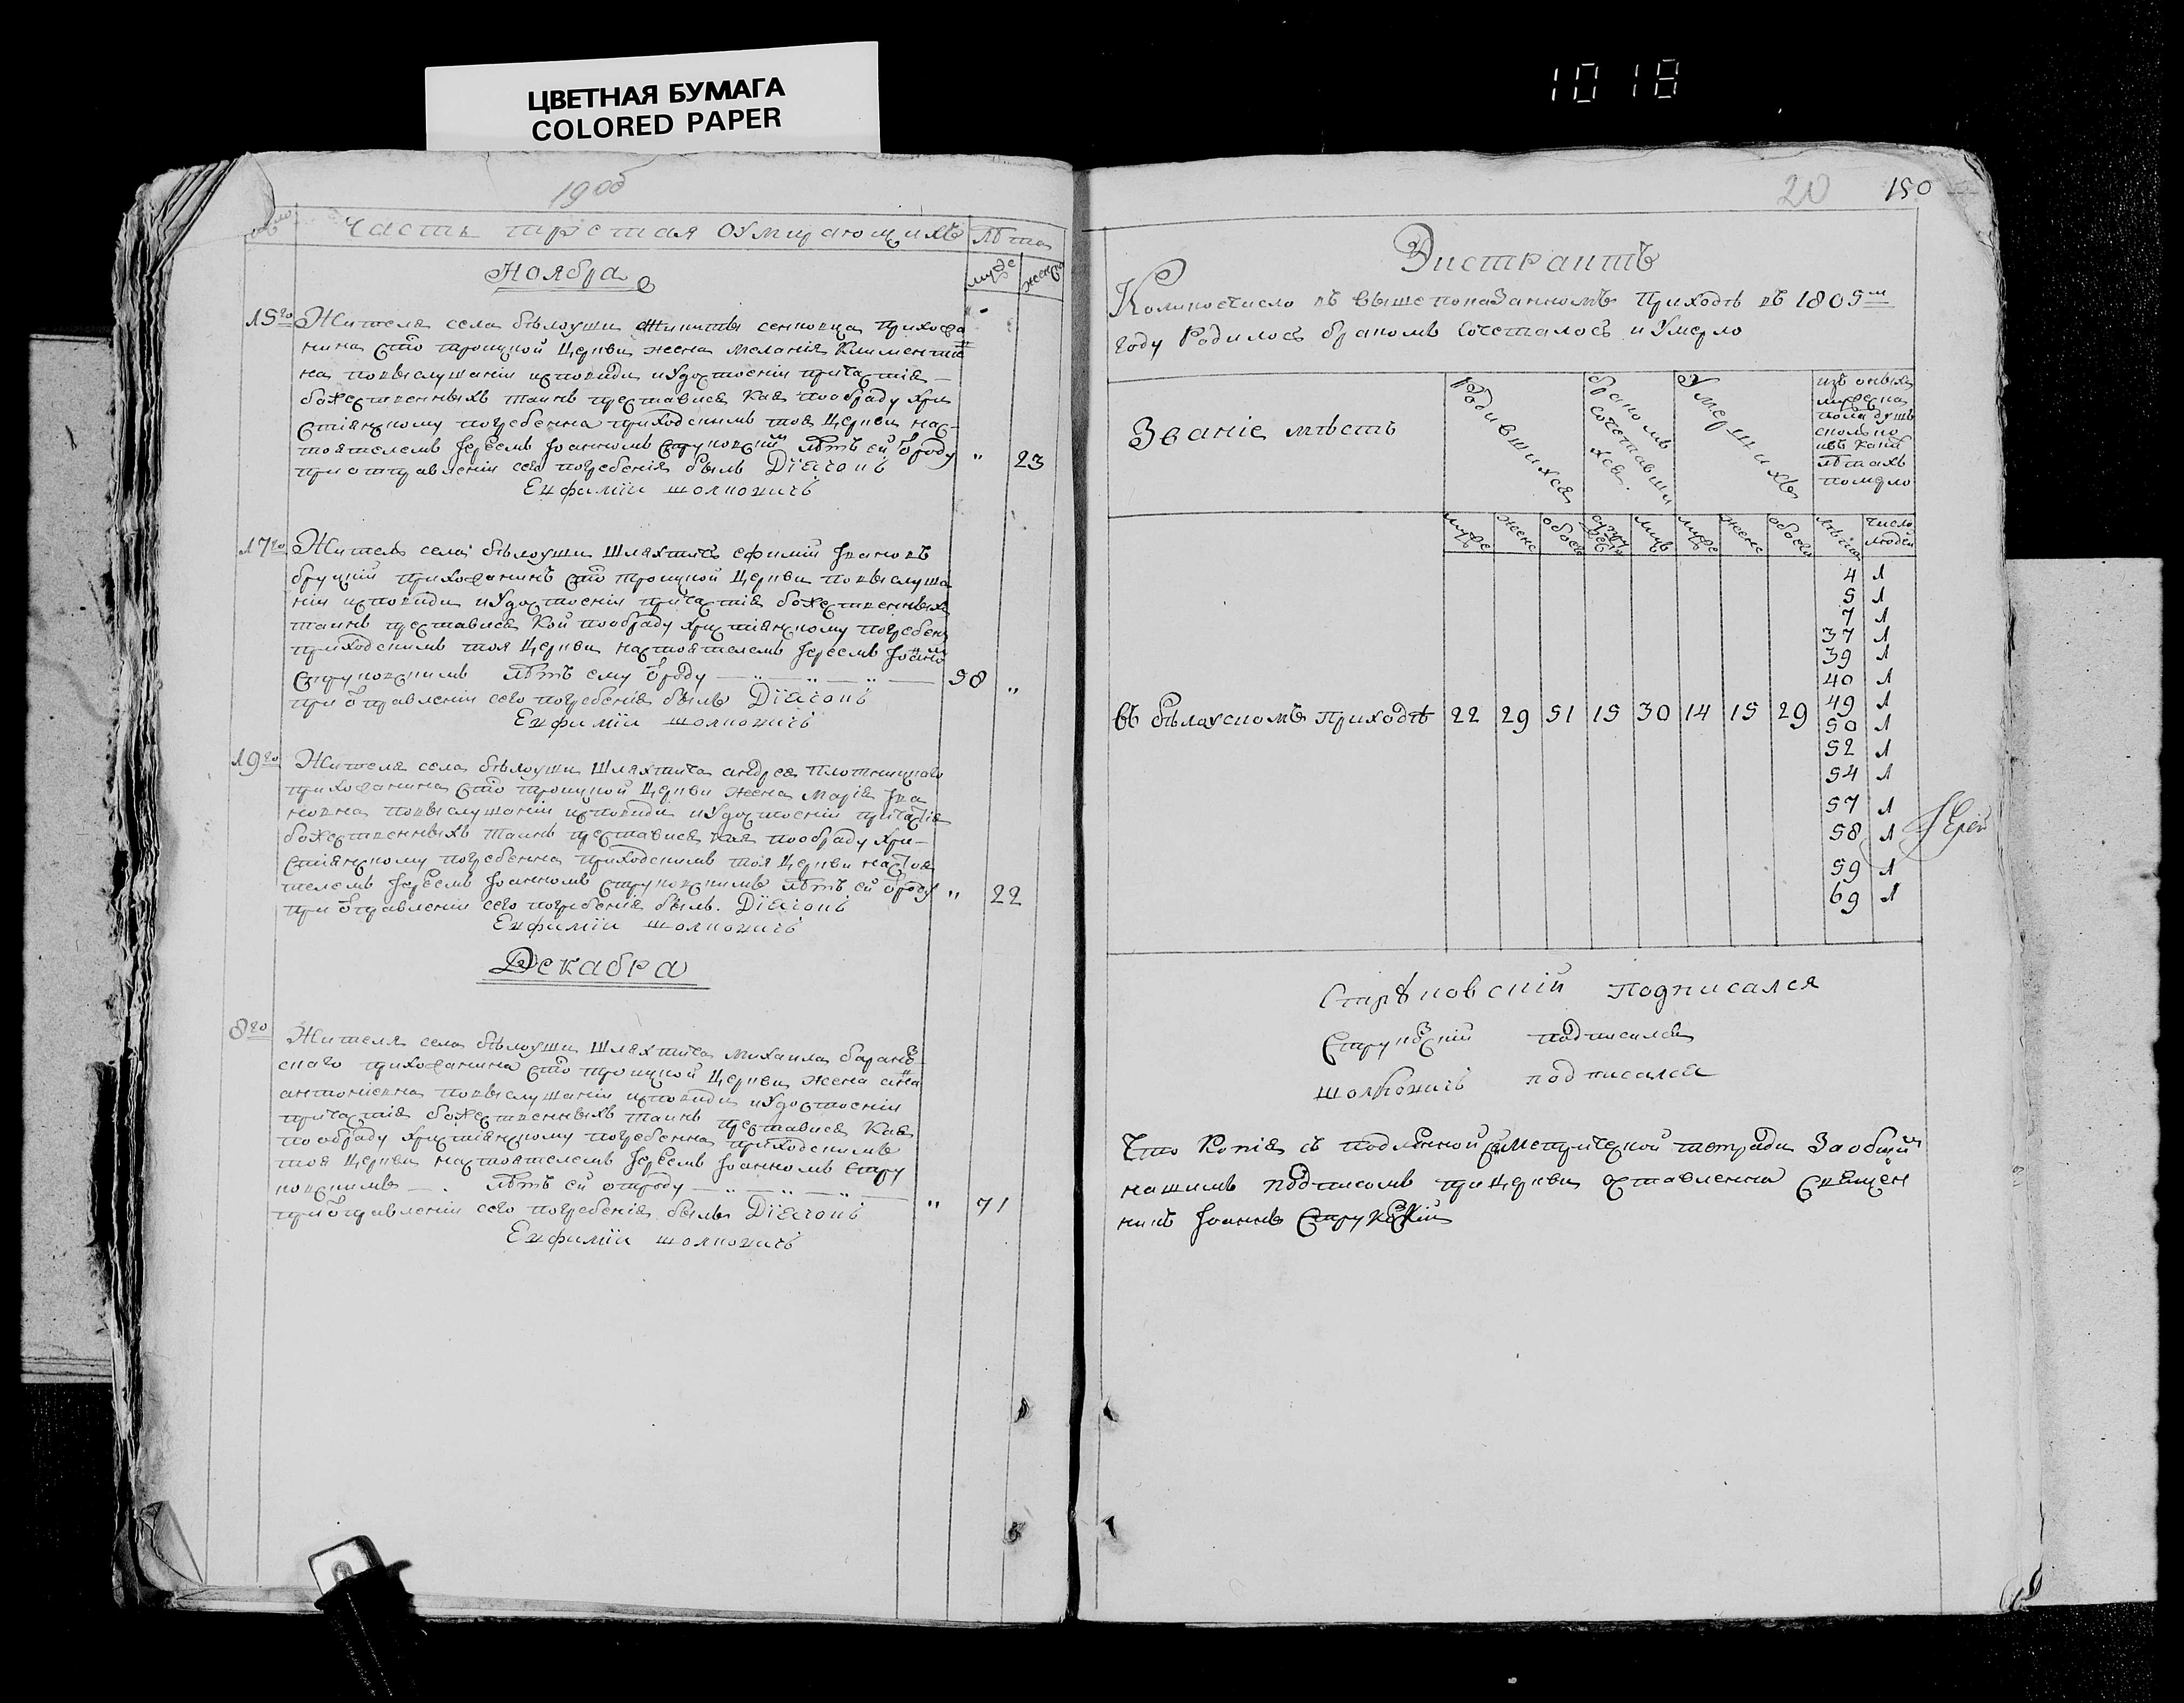 ЦВЕТНАЯ БУМАГА
COLORED PAPER
1018
19об
Часть третая оумирающихъ
Лѣта
муже
женс
Ноября
15го
Жителя села бѣлоуши Никиты сенковца прихожа
нина сто троицкой Церкви жена меланія Климентие
на повыслушаніи исповиди иУдостоеніи причастія —
божественныхъ таинъ преставися Кая пообряду хри
стіянскому погребенна приходскимъ тоя Церкви нас-
тоятелемъ Іереемъ Іоанномъ Струковскимъ лѣтъ ей ѿроду " 23
при отправленіи сего погребенія былъ Діаконъ
Евфимій шолковичъ
17го
Житель села бѣлоуши Шляхтичъ ефимій Ивановъ
бруцкій прихожанинъ сто троицкой Церкви повыслуша
ніи исповиди иУдостоеніи причастія божественныхъ
таинъ преставися Кой пообряду христіянскому погребенъ
приходскимъ тоя Церкви настоятелемъ Іереемъ Іоанно
Струковскимъ лѣтъ ему ѿроду — " — " — " — 58 "
при ѿправленіи сего погребенія былъ Діаконъ
Евфимій шолковичъ
19го
Жителя села бѣлоуши Шляхтича андрея Плотницкаго
прихожанина сто троицкой Церкви жена марія Ива
новна повыслушаніи исповиди иУдостоеніи причастія
божественныхъ таинъ преставися кая пообряду хри-
стіянскому погребенна приходскимъ тоя Церкви настоя
телемъ Іереемъ Іоанномъ струковскимъ лѣтъ ей ѿроду " 22
при ѿправленіи сего погребенія былъ. Діаконъ
Евфимій шолковичъ
Декабря
8го
Жителя села бѣлоуши Шляхтича михаила баранов
скаго прихожанина сто троицкой Церкви жена анна
антониевна повыслушаніи исповиди иУдостоеніи
причастія божественныхъ таинъ преставися Кая
пообряду христіянскому погребенна приходскимъ
тоя Церкви настоятелемъ Іереемъ Іоанномъ Стру
ковскимъ — . лѣтъ ей отроду — " — " — " — " 71
при ѿправленіи сего погребенія былъ Діаконъ
Евфимій шолковичъ
20 150
Экстрактъ
Коликочисло въ вышепоказанномъ Приходѣ въ 1805м
году Родилось бракомъ Сочеталось и Умерло
Званіе мѣстъ
Родившихся
бракомъ сочетавши хся.
Умершихъ
изъ оныхъ
мужеска
пола душъ
сколько
ивъ каки
лѣтахъ
померло
муже
женс
обоег
супру
жествъ
лицъ
муже
женс
обоег
лѣта
число
людей
4 1
5 1
7 1
37 1
39 1
40 1
49 1
въ бѣлоускомъ приходѣ 22 29 51 15 30 14 15 29
50 1
52 1
54 1
57 1
58 1
59 1
69 1
Іерей
Стрꙋковскій Подписался
Струковскій подписался
шолковичъ подписался
Что Копія съ подлинной метрической тетради За общим
нашимъ подписомъ при церкви оставленна Священ
никъ Іоаннъ Струковскій